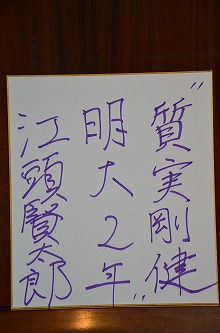 〝質実剛健〟
明大2年
江頭賢太郎